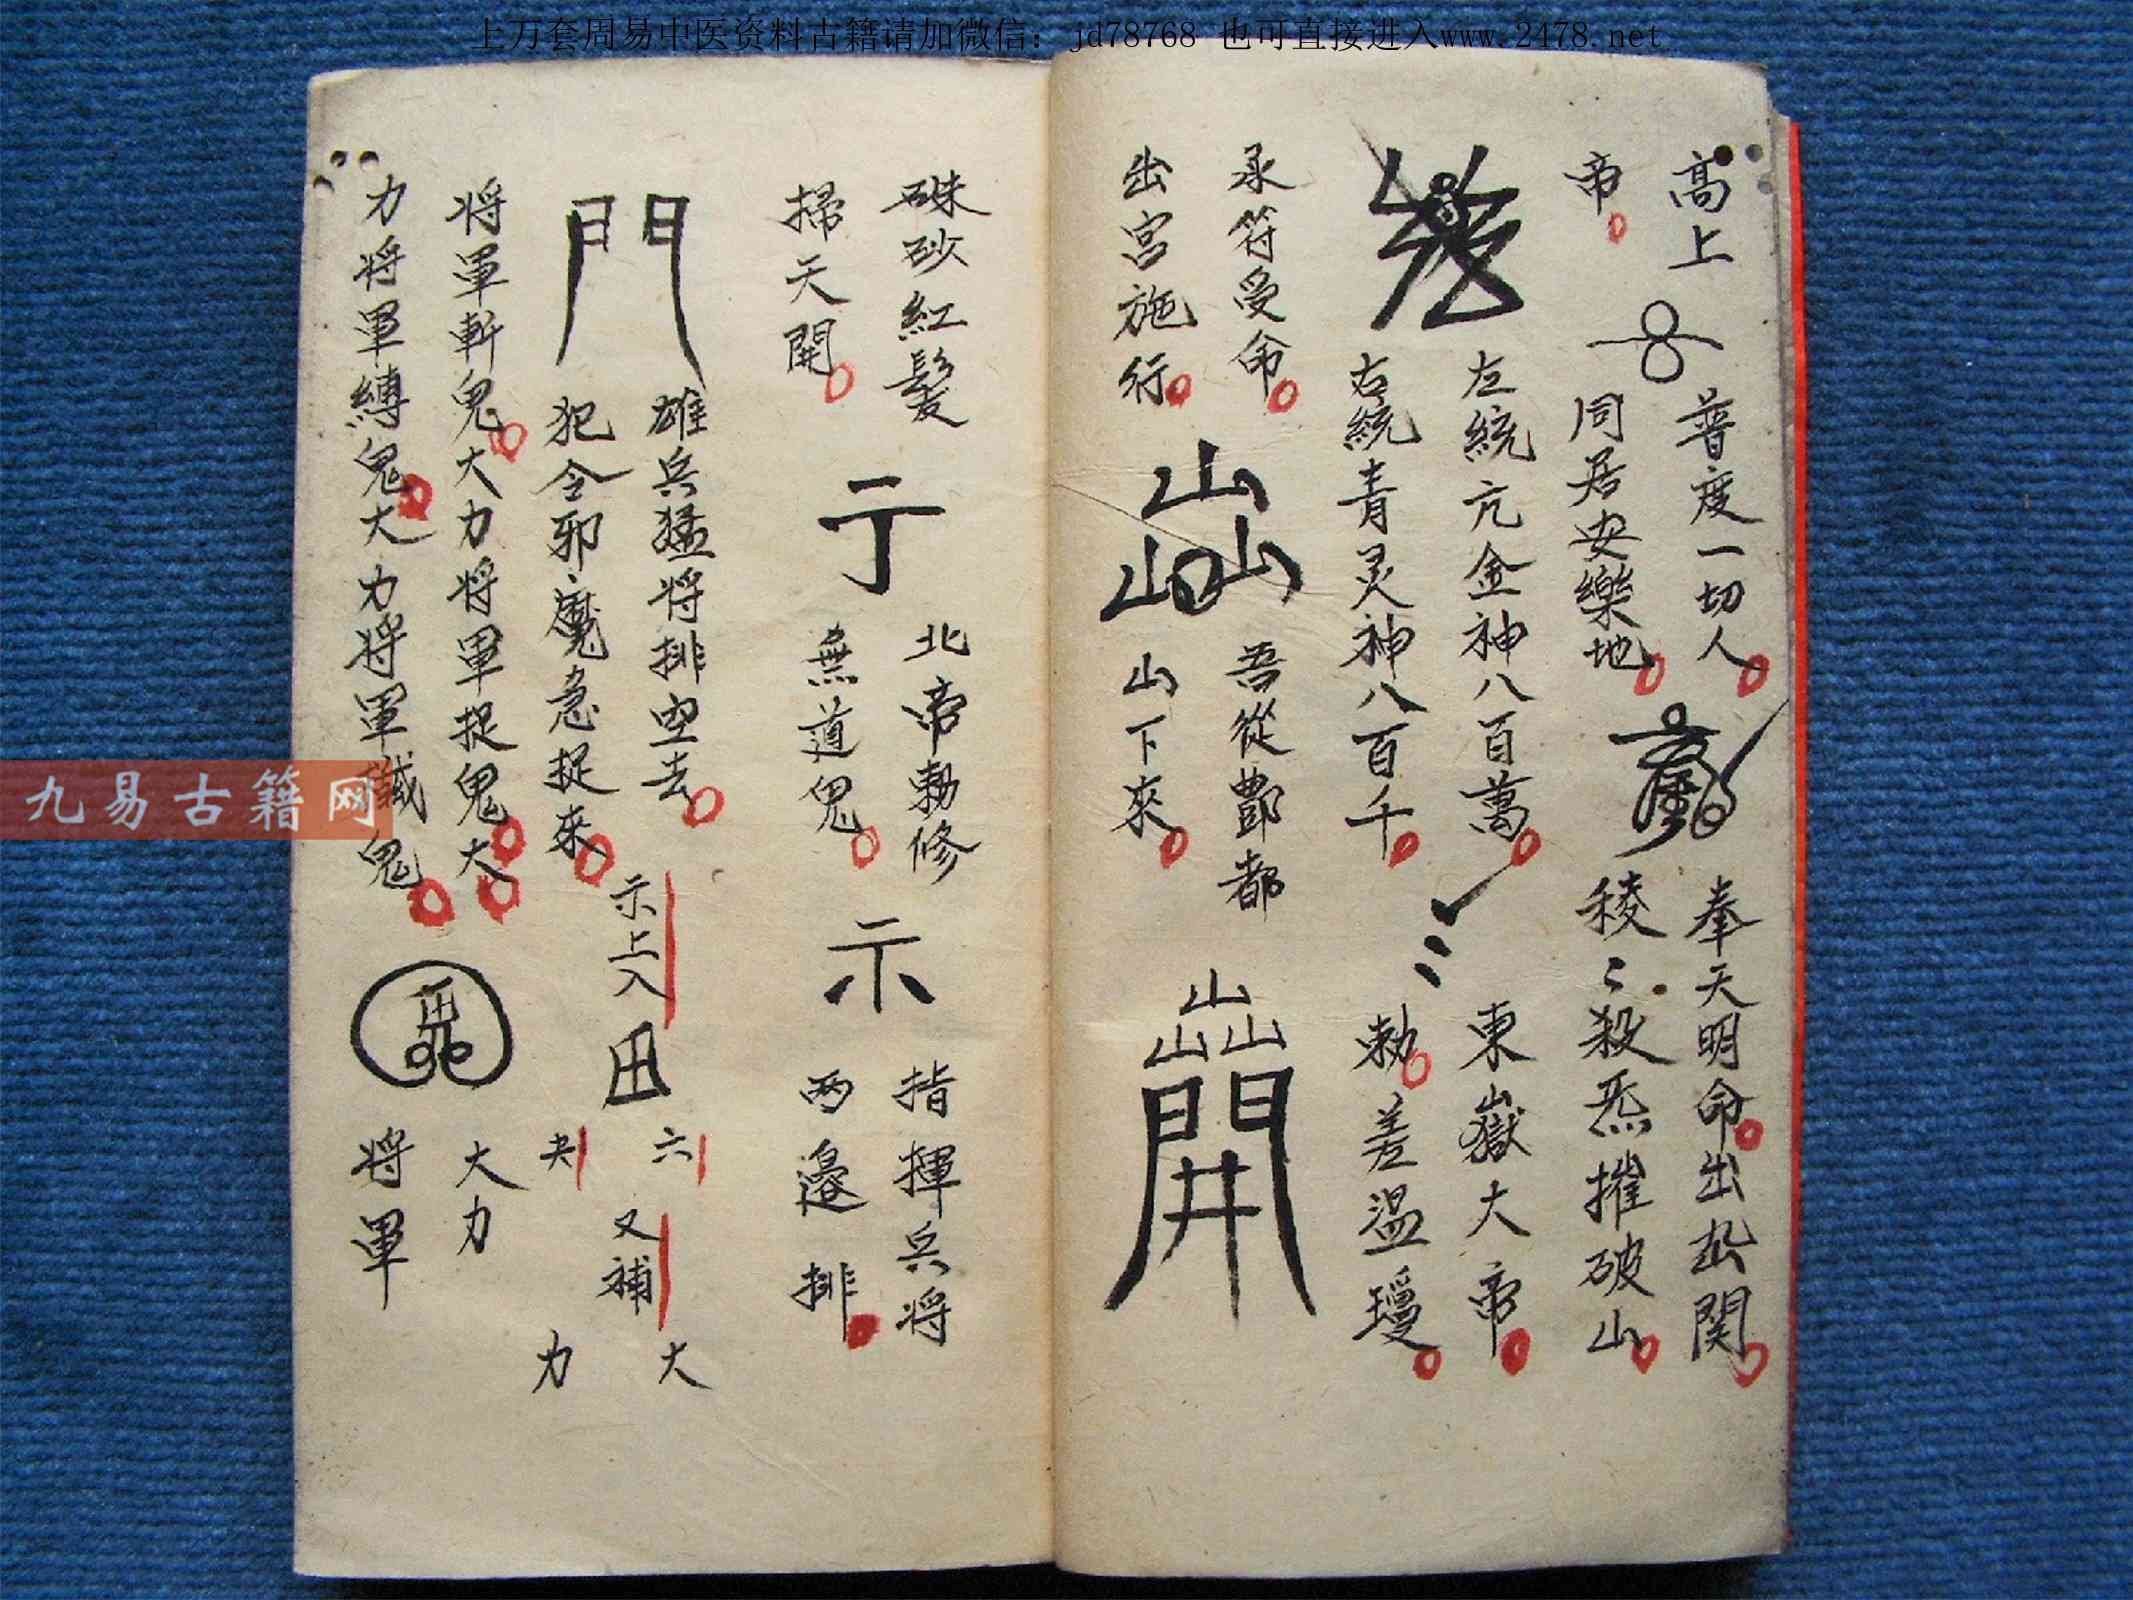 上万套周易中医资料古籍请加微信：jd78768 也可直接进入www.2478.net
高上
帝
普度一切人
同居安樂地
奉天明命出關
稜〻殺炁摧破山
左統亢金神八百萬
右統青灵神八百千
東嶽大帝
勅差温瓊
承符受命
出宮施行
吾從酆都
山下來
山山山
開
硃砂紅髮
掃天開
北帝勅修
無道鬼
示
指揮兵将
两邉排
門
雄兵猛将排空去
犯令邪魔急捉來
示上入
田
六
夫
又補
大
力
将軍斬鬼大力将軍捉鬼大
力将軍縛鬼大力将軍鬼
大力
将軍
九易古籍网